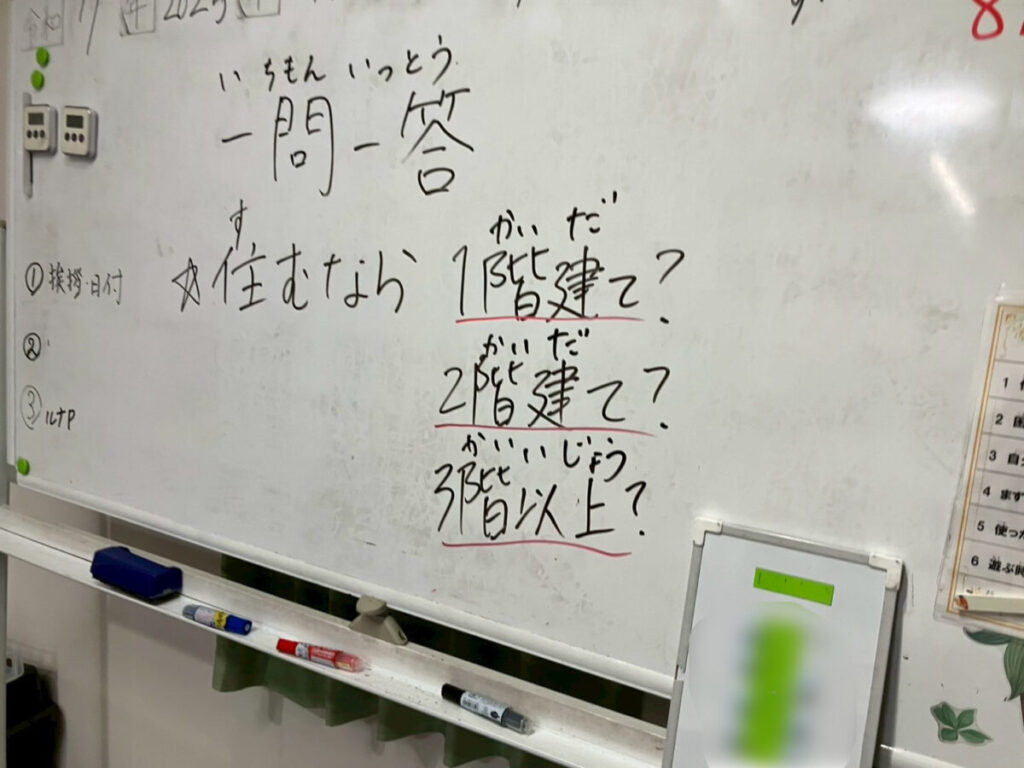 令和 7 年 2025 年
8
いちもん いっとう
一問一答
す
☆住むなら
かい だ
1階建て?
かい だ
2階建て?
かい いじょう
3階以上?
① 挨拶・日付
②
③ ルナP
1
2
3 自
4 ます
5 使った
6 遊ぶ時